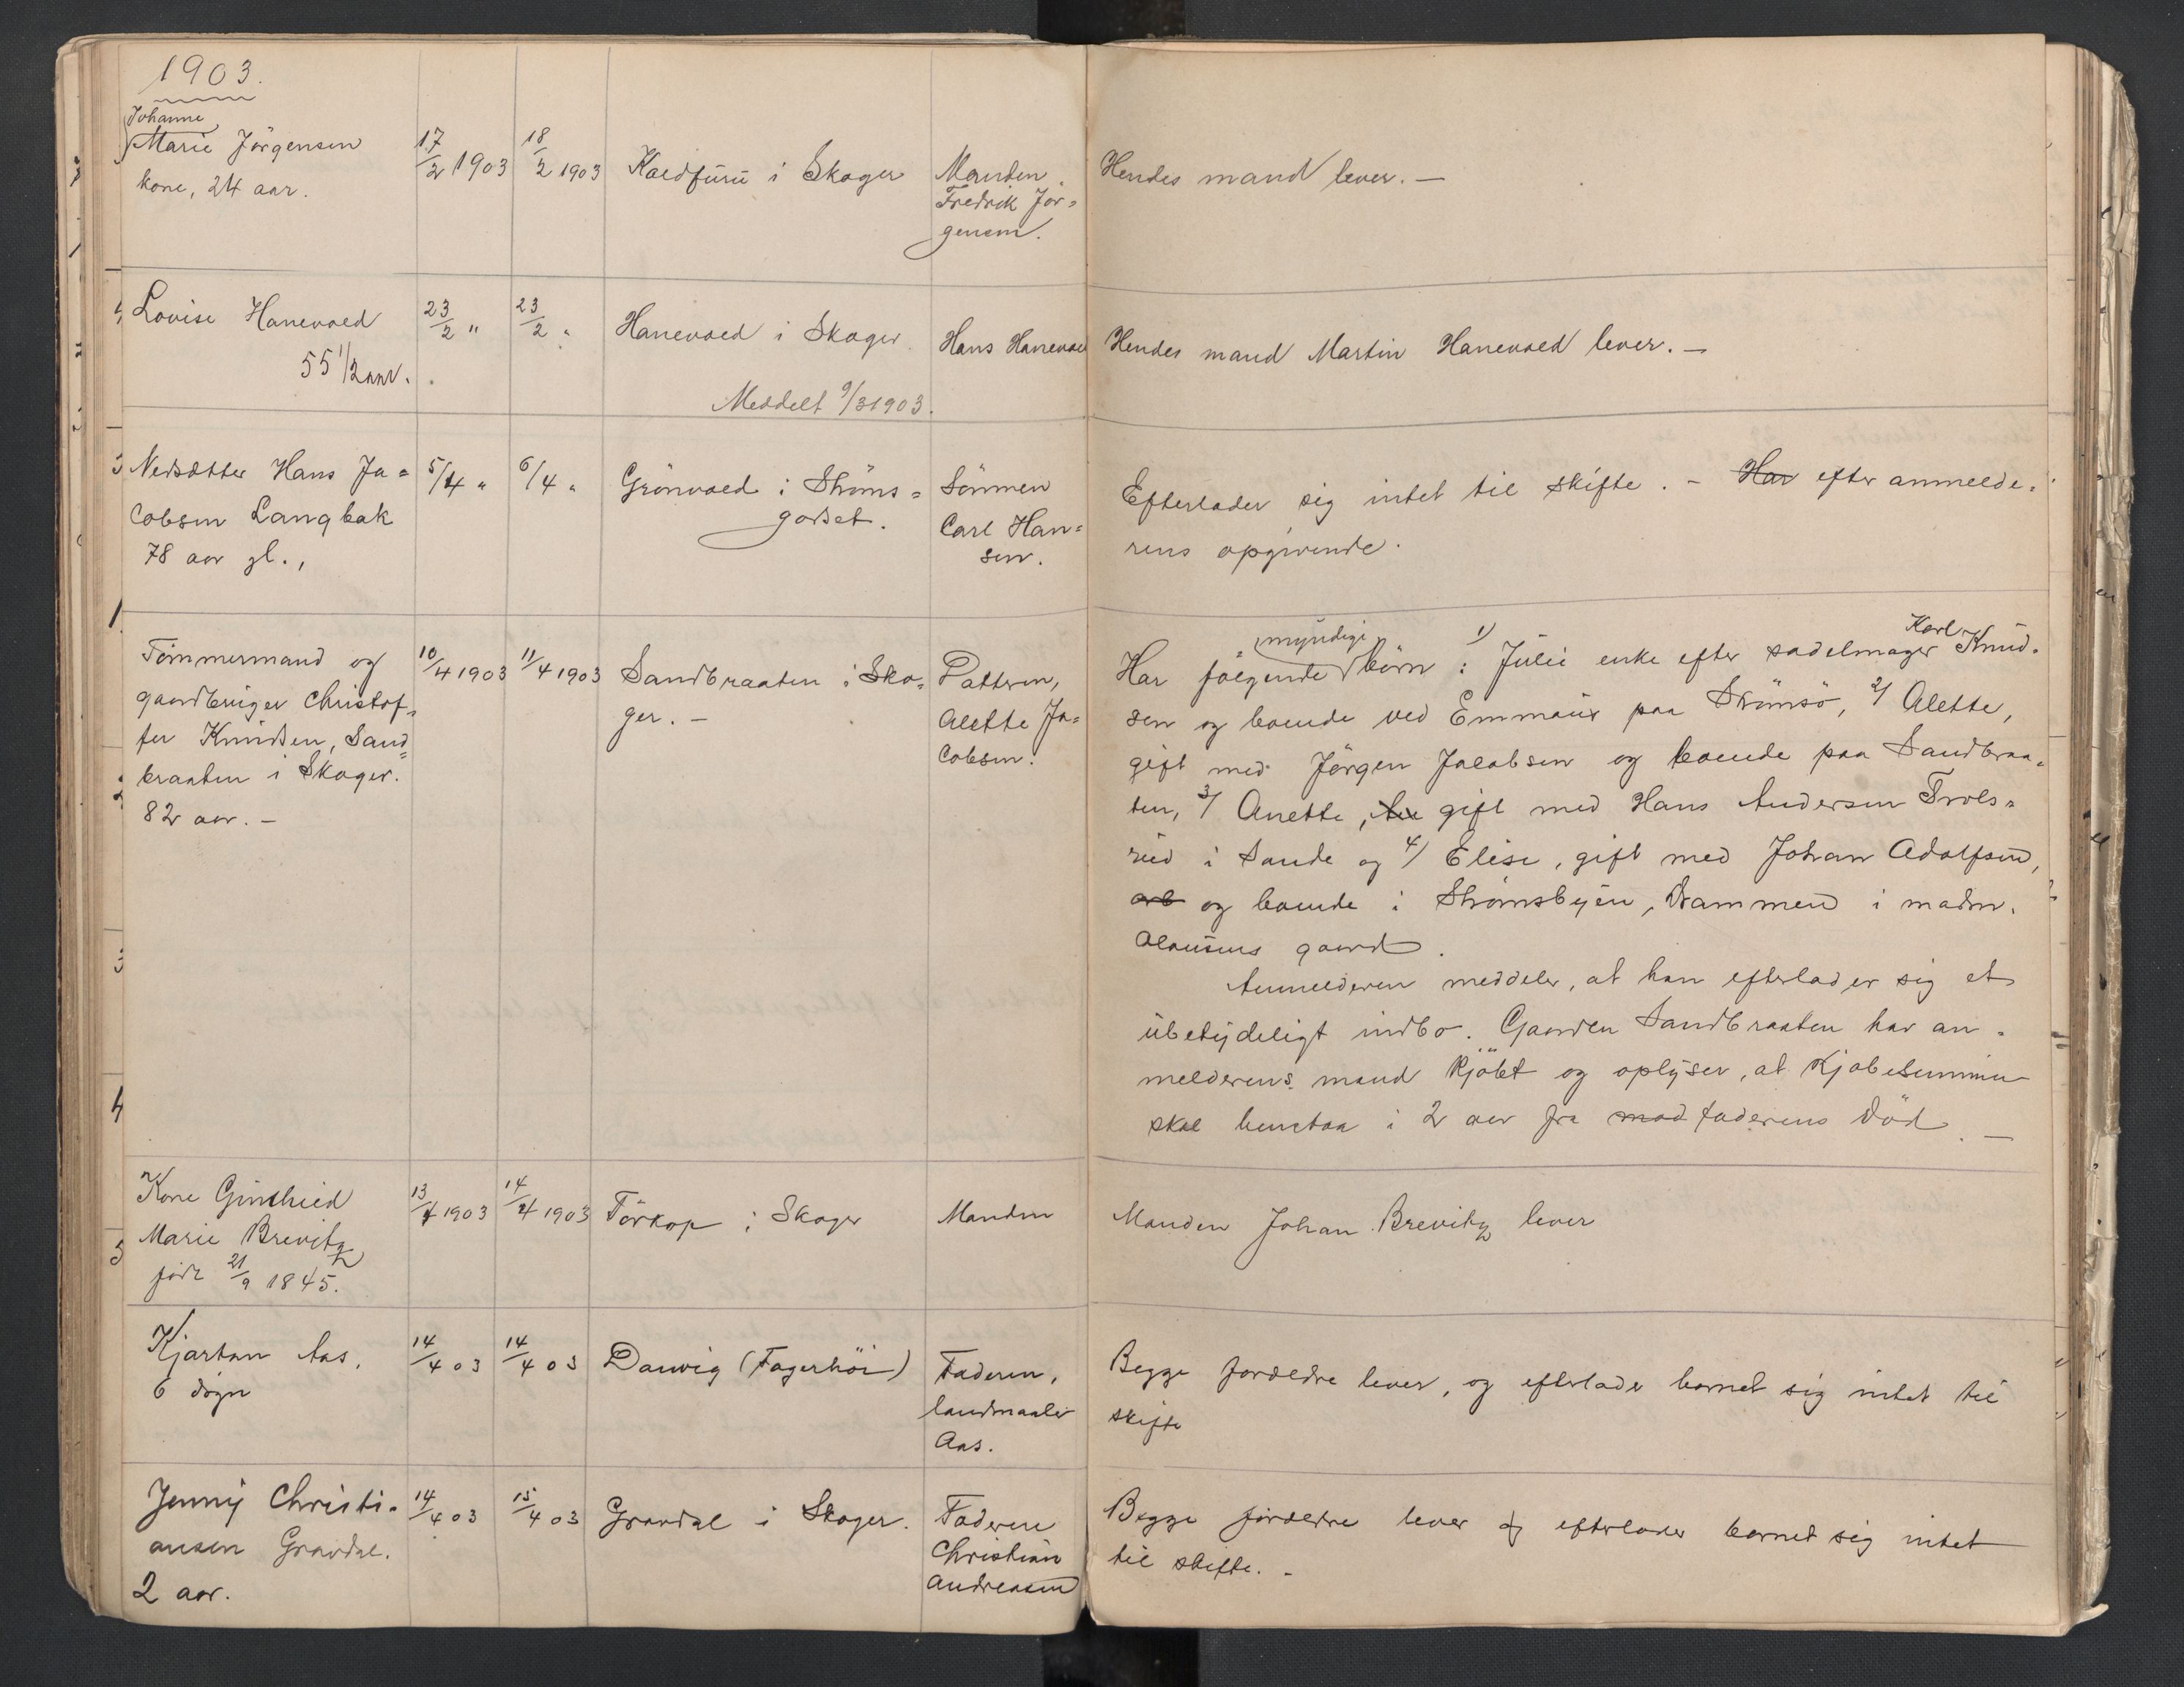 1903.
Johanne
Marie Jörgensen
kone, 24 aar.
17/2 1903
18/2 1903
Koldfuru i Skoger
Manden
Fredrik Jör=
gensen.
Hendes mand lever. —
Lovise Hanevold
55 1/2 aar.
23/2 "
23/2 "
Hanevold i Skoger.
Meddelt 9/3 1903.
Hans Hanevold
Hendes mand Martin Hanevold lever. —
Nedsætter Hans Ja=
cobsen Langbak
78 aar gl.,
5/4 "
6/4 "
Grönvold i Ströms=
godset.
Sönnen
Carl Han=
sen.
Efterlader sig intet til skifte. – Har efter anmelde=
rens opgivende.
Tömmermand og
gaardbruger Christof=
fer Knudsen, Sand=
braaten i Skoger.
82 aar. —
10/4 1903
11/4 1903
Sandbraaten i Sko=
ger. —
Datteren,
Alette Ja=
cobsen.
myndige
Karl
Har følgende børn: 1) Julie enke efter sadelmager Knud=
sen og boende ved Emmaus paa Strömsö, 2) Alette,
gift med Jörgen Jacobsen og boende paa Sandbraa=
ten, 3) Anette, gift med Hans Andersen Trols=
rud i Sande og 4) Elise, gift med Johan Adolfsen,
og boende i Strömsbyen, Drammen i madm.
gaard.
Anmelderen meddeler, at han efterlader sig et
ubetydeligt indbo. Gaarden Sandbraaten har an=
melderens mand kjöbt og oplyser, at kjöbesummen
skal henstaa i 2 aar fra mod faderens död. —
Kone Gunhild
Marie Brevitz
född 21/9 1845.
13/4 1903
14/4 1903
Törkop i Skoger
Manden
Manden Johan Brevitz lever
Kjartan Aas,
6 døgn
14/4 03
14/4 03
Danvig (Fagerhöi)
Faderen,
landmaaler
Aas.
Begge forældre lever, og efterlader barnet sig intet til
skifte
Jenny Christi=
ansen Gravdal.
2 aar.
14/4 03
15/4 03
Gravdal i Skoger.
Faderen
Christian
Andreasen
Begge forældre lever og efterlader barnet sig intet
til skifte. –